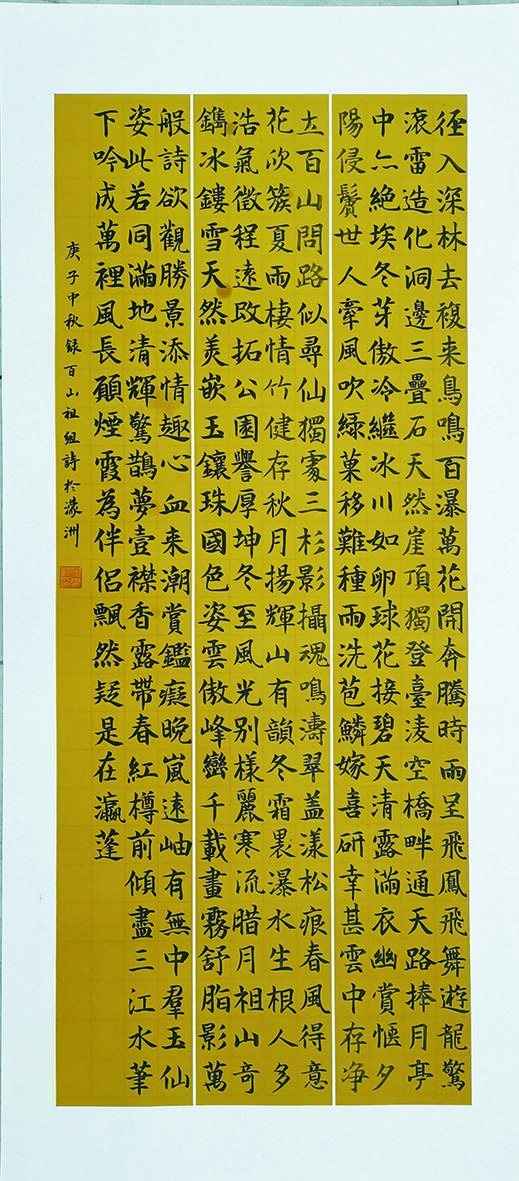 徑入深林去複来鳥鳴百瀑萬花開奔騰時雨呈飛鳳飛舞遊龍驚
滾雷造化洞邊三疊石天然崖頂獨登臺淩空橋畔通天路捧月亭
中亦絕埃冬芽傲冷繼冰川如卵球花接碧天清露滿衣幽賞愜夕
陽侵鬢世人牽風吹緑菓移難種雨洗苞鱗嫁喜研幸甚雲中存净
土百山問路似尋仙獨處三杉影攝魂鳴濤翠盖漾松痕春風得意
花欣簇夏雨棲情竹健存秋月揚輝山有韻冬霜裹瀑水生根人多
浩氣徵程遠改拓公園譽厚坤冬至風光别樣麗寒流腊月祖山奇
鐫冰鏤雪天然美嵌玉鑲珠國色姿雲傲峰巒千載畫霧舒脂影萬
般詩欲觀勝景添情趣心血来潮賞鑑癡晚嵐遠岫有無中羣玉仙
姿此若同滿地清輝驚鵲夢壹襟香露帶春紅樽前傾盡三江水筆
下吟成萬裡風長願煙霞為伴侶飄然疑是在瀛蓬
庚子中秋録百山祖組詩於濛洲